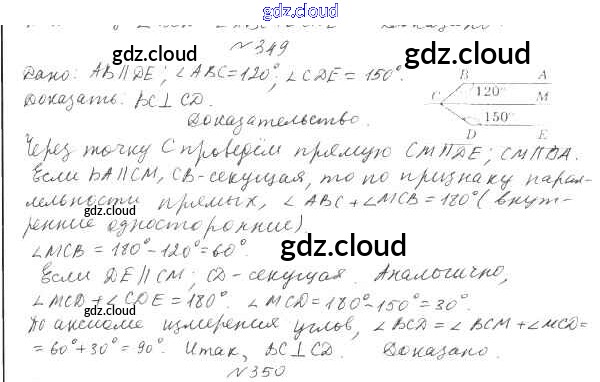 gdz.cloud
№349
gdz.cloud
Дано: AB∥DE; ∠ABC=120°; ∠CDE = 150°.
Доказать: BC⊥CD. Доказано.
gdz.cloud
Доказательство.
B A
120°
C M
150°
D E
Через точку C проведём прямую CM∥DE; CM∥BA.
Если BA∥CM, CB-секущая, то по признаку парал-
лельности прямых, ∠ABC+∠MCB=180° (внут-
ренние односторонние).
gdz.cloud
∠MCB = 180°-120°=60°.
gdz.cloud
Если DE∥CM; CD-секущая. Аналогично,
∠MCD+∠CDE = 180°. ∠MCD=180°-150°=30°.
gdz.cloud
По аксиоме измерения углов, ∠BCD=∠BCM+∠MCD=
=60°+30°=90°. Итак, BC⊥CD. Доказано.
gdz.cloud
№350